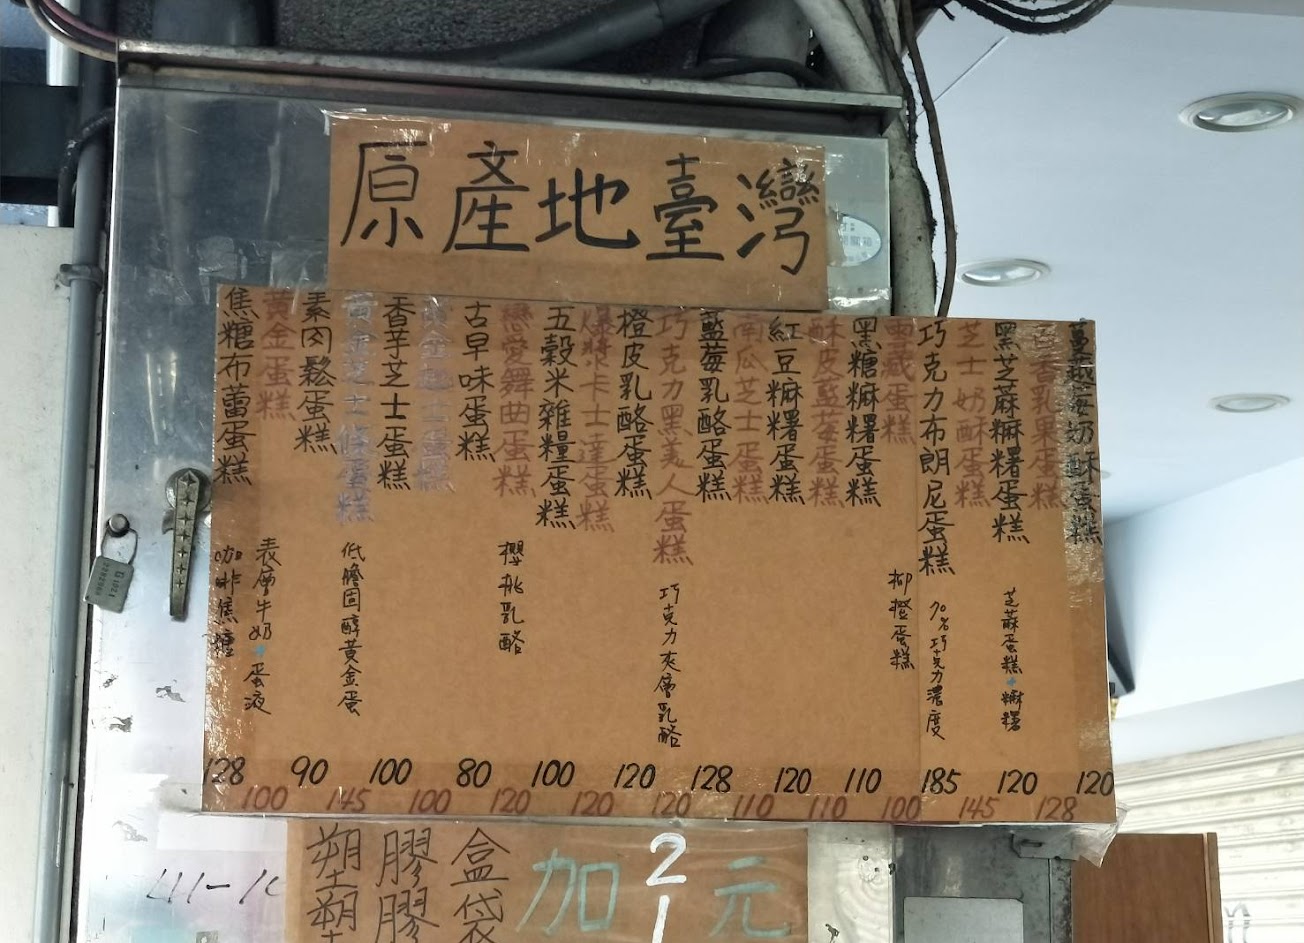 原產地臺灣
蔓越莓奶酥蛋糕
120
百香乳果蛋糕
128
黑芝麻麻糬蛋糕
芝蔴蛋糕+麻糬
120
芝士奶酥蛋糕
145
巧克力布朗尼蛋糕
70%巧克力濃度
185
雪藏蛋糕
柳橙蛋糕
100
黑糖麻糬蛋糕
110
酥皮藍莓蛋糕
110
紅豆麻糬蛋糕
120
南瓜芝士蛋糕
110
藍莓乳酪蛋糕
128
巧克力黑美人蛋糕
巧克力夾層乳酪
120
橙皮乳酪蛋糕
120
爆漿卡士達蛋糕
120
五穀米雜糧蛋糕
100
戀愛舞曲蛋糕
櫻桃乳酪
120
古早味蛋糕
80
黃金起士蛋糕
100
香芋芝士蛋糕
100
黃金芝士條蛋糕
低膽固醇黃金蛋
145
素肉鬆蛋糕
90
黃金蛋糕
表層牛奶+蛋液
100
焦糖布蕾蛋糕
咖啡焦糖
128
塑膠盒加2元
塑膠袋 1